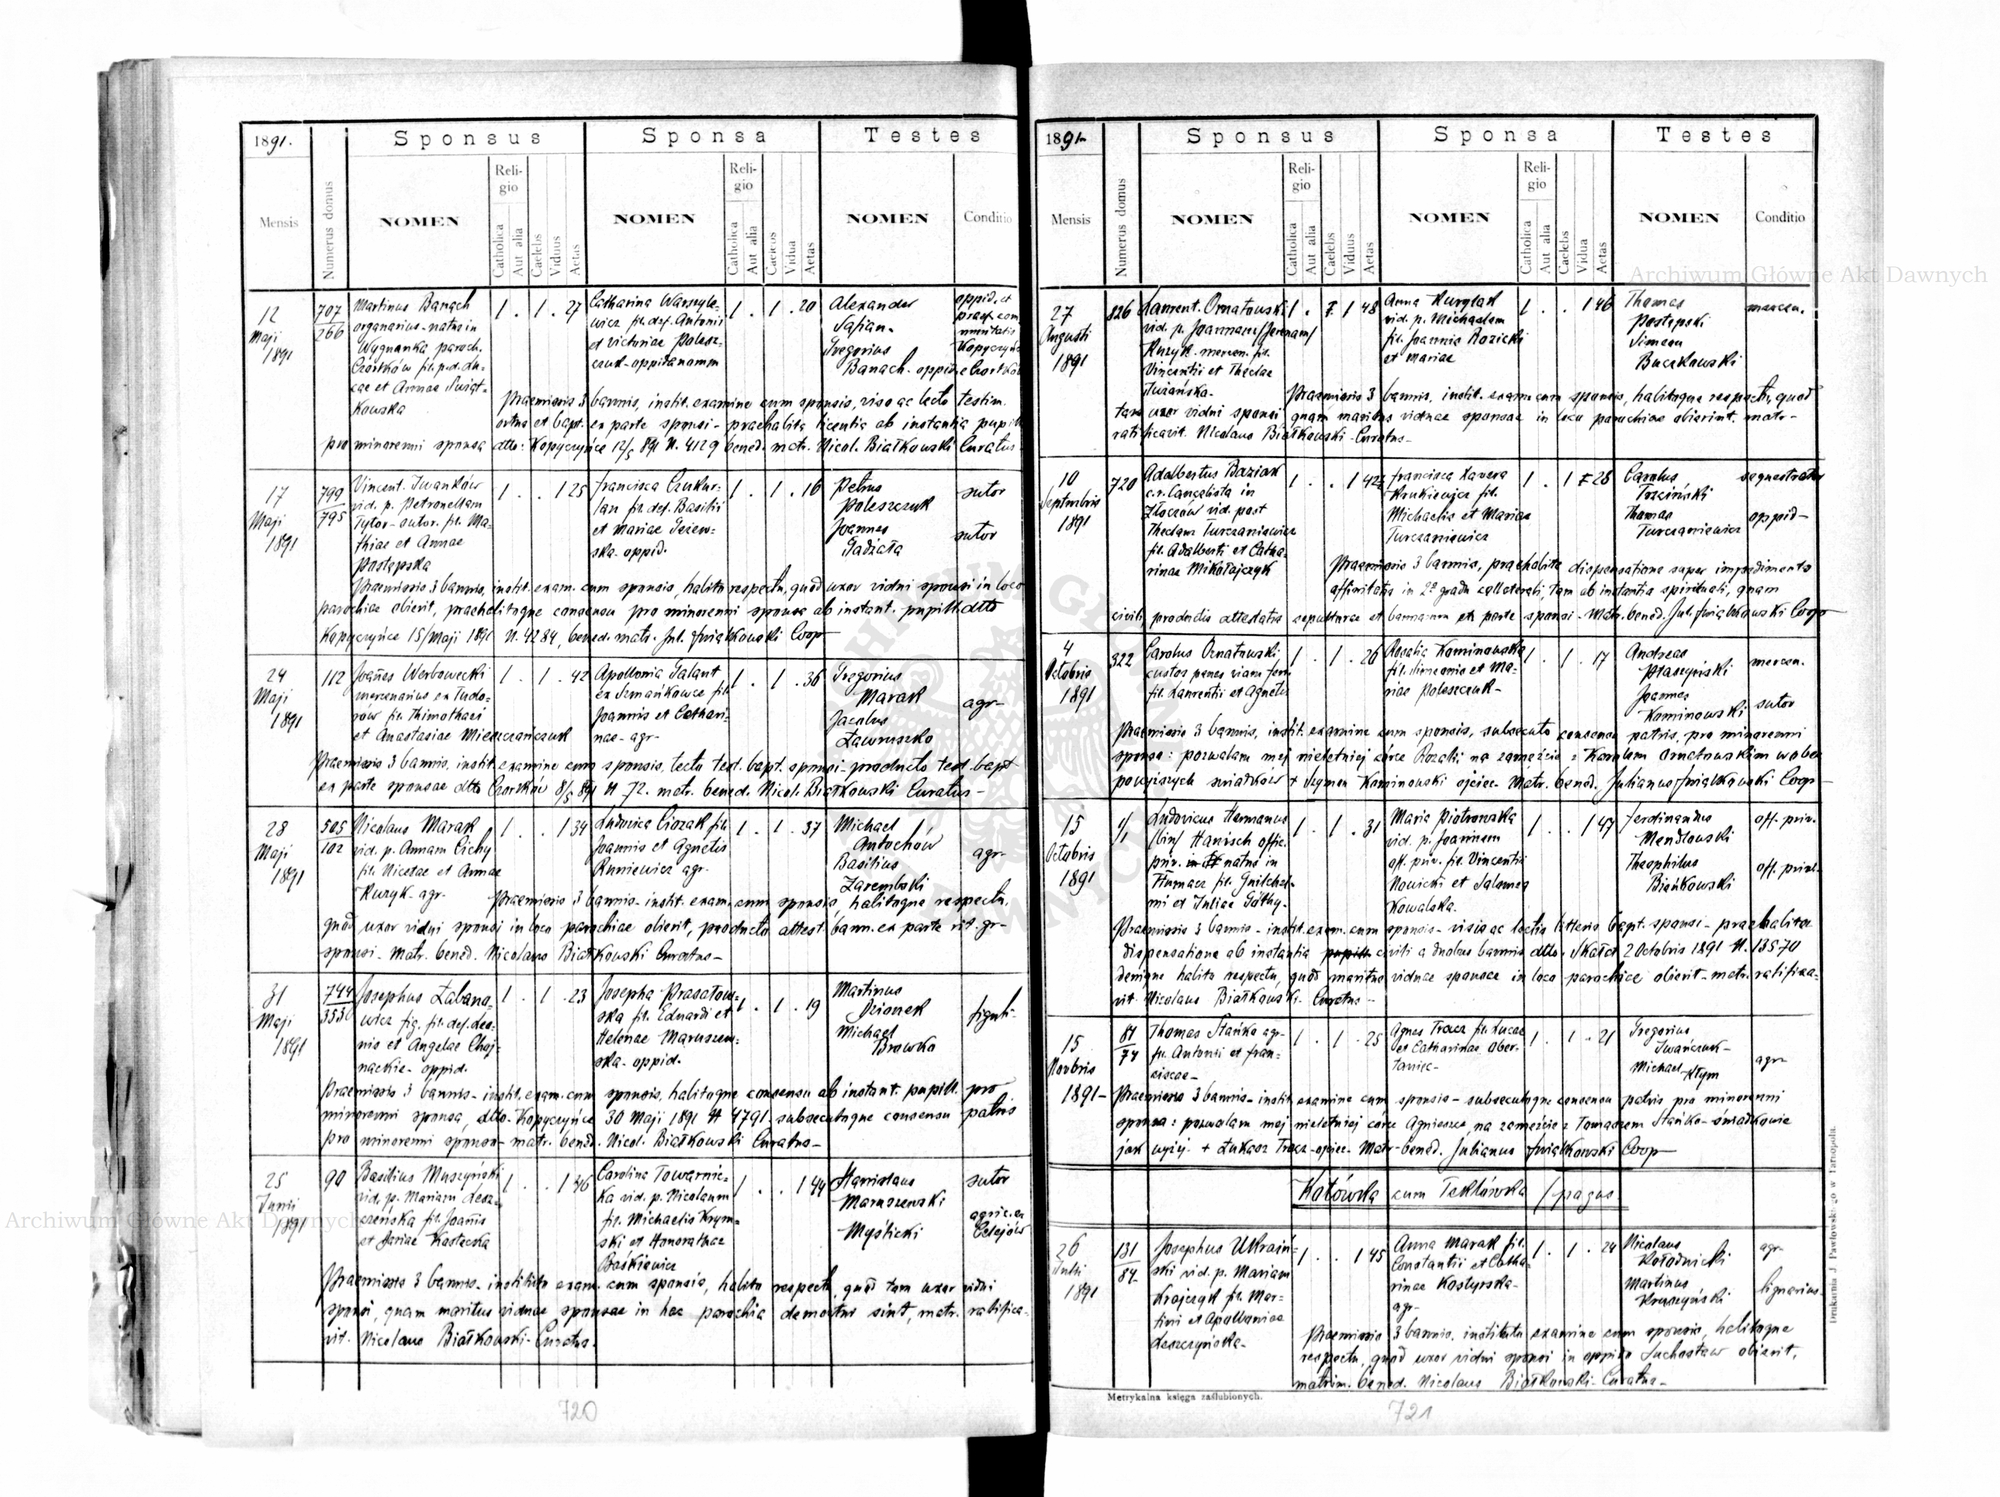 1891.
Sponsus
Sponsa
Testes
Mensis
Numerus domus
NOMEN
Religio
Catholica
Aut alia
Caelebs
Viduus
Aetas
NOMEN
Religio
Catholica
Aut alia
Caelebs
Vidua
Aetas
NOMEN
Conditio
12 Maji 1891
707
266
Martinus Banach
organarius natus in
Wygnanka paroch.
Kowska
1 . 1 . 27
1 . 1 . 20
Alexander
Safian
Gregorius
Banach
Praemissis 3 bannis, instit. examine cum sponsis, viso ac lecto testim.
ortus et bapt. ex parte sponsi - praehabita licentia ab instantia pupill.
pro minorenni sponsa ddto: Kopyczyńce 12/5 891 N. 4129 bened. matr. Nicol. Białkowski Curatus
17 Maji 1891
799
795
Vincent. Iwanków
vid. p. Petronellam
Tytor - sutor. fil. Ma-
thiae et Annae
Postępska
1 . . 1 25
et Mariae
ska - oppid.
1 . 1 . 16
Petrus
Poleszczuk
Joannes
Gadziała
sutor
sutor
Praemissis 3 bannis, instit. exam. cum sponsis, habito respectu, quod uxor vidui sponsi in loco
parochiae obierit, praehabitoque consensu pro minorenni sponsa ab instant. pupill. ddto
Kopyczyńce 15/Maji 1891 N. 4284, bened. matr. Jul. Kwiatkowski Coop
24 Maji 1891
112
Joañes Werbowecki
mercenarius ex Tudo-
rów fil. Thimothaei
et Anastasiae Mieszczańczuk
1 . 1 . 42
Apollonia Galant
ex Szmańkowce fil.
Joannis et Cathari-
nae - agr-
1 . 1 . 36
Gregorius
Marak
Jacobus
Ławruszko
agr-
Praemissis 3 bannis, instit. examine cum sponsis, lecto test. bapt. sponsi - producto test. bapt
ex parte sponsae ddto Czortków 8/5 891 N 72. matr. bened. Nicol. Białkowski Curatus -
28 Maji 1891
505
102
Nicolaus Marak
vid. p. Annam Cichy
fil. Nicolae et Annae
Kuzyk - agr.
1 . . 1 34
Ludovica Ciozak fil.
Joannis et Agnetis
Runiewicz agr.
1 . 1 . 37
Michael
Antochów
Basilius
Zarembski
agr-
Praemissis 3 bannis - instit. exam. cum sponsis, habitoque respectu,
quod uxor vidui sponsi in loco parochiae obierit, producto attest. bann. ex parte rit. gr-
sponsi - matr. bened. Nicolaus Białkowski Curatus -
31 Maji 1891
744
Josephus Łabano-
wicz fig. fil. def. Leo-
nis et Angelae Choj-
nackie - oppid.
1 . 1 . 23
Josepha Krasatow-
ska fil. Eduardi et
Helenae Maruszew-
ska - oppid.
1 . 1 . 19
Martinus
Dzionek
Michael
Browko
figuli-
Praemissis 3 bannis - instit. exam. cum sponsis, habitoque consensu ab instant. pupill. pro
minorenni sponsa, ddto - Kopyczyńce 30 Maji 1891 N 4791, subsecutoque consensu patris
pro minorenni sponso - matr. bened. Nicol. Białkowski Curatus -
25 Junii 1891
90
Basilius Muszyński
vid. p. Mariam Lesz-
czeńska fil. Joañis
et Mariae Kostecka
1 . . 1 46
Carolina Towarnic-
ka vid. p. Nicolaum
fil. Michaelis Krym-
ski et Honorathae
Baśkiewicz
1 . . 1 44
Stanislaus
Maruszewski
Myślicki
sutor
agric. ex
Celejów
Praemissis 3 bannis - instituto exam. cum sponsis, habito respectu, quod tam uxor vidui
sponsi, quam maritus viduae sponsae in hac parochia demortui sint, matr. ratifica-
vit. Nicolaus Białkowski - Curatus.
720
1891
Sponsus
Sponsa
Testes
Mensis
Numerus domus
NOMEN
Religio
Catholica
Aut alia
Caelebs
Viduus
Aetas
NOMEN
Religio
Catholica
Aut alia
Caelebs
Vidua
Aetas
NOMEN
Conditio
27 Augusti 1891
826
Laurent. Ornatowski
vid. p. Joannam
Kuzyk - mercen. fil.
Vincentii et Theclae
Iwańska -
1 . . 1 48
Anna Kurylak
vid. p. Michaelem
fil. Joannis Rozicki
et Mariae
1 . . 1 46
Thomas
Postępski
Simeon
Buczkowski
mercen.
Praemissis 3 bannis, instit. exam. cum sponsis, habitoque respectu, quod
tam uxor vidui sponsi quam maritus viduae sponsae in loco parochiae obierint. matr-
ratificavit. Nicolaus Białkowski - Curatus -
10 Septembris 1891
720
Adalbertus Baziak
c.r. Cancelista in
Złoczów vid. post
Theclam Turczaniewicz
fil. Adalberti et Catha-
rinae Mikołajczyk
1 . . 1 42
Francisca Xavera
Krukiewicz fil.
Michaelis et Mariae
Turczaniewicz
1 . 1 . 28
Carolus
Trzciński
Thomas
Turczaniewicz
sequestrator
oppid-
Praemissis 3 bannis, praehabita dispensatione super impedimento
affinitatis in 2º gradu collaterali, tam ab instantia spirituali, quam
civili, productis attestatis sepulturae et bannorum ex parte sponsi - Matr. bened. Jul. Kwiatkowski Coop
4 Octobris 1891
322
Carolus Ornatowski
custos penes viam ferr.
fil. Laurentii et Agnetis
1 . 1 . 26
Rosalia Kominowska
fil. Simeonis et Ma-
riae Poleszczuk -
1 . 1 . 17
Andreas
Płaszyński
Joannes
Kominowski
mercen.
sutor
Praemissis 3 bannis, instit. examine cum sponsis, subsecuto consensu patris, pro minorenni
sponsa: pozwalam mej nieletniej córce Rozalii na zamęźcie z Karolem Ornatowskim wobec
powyższych świadków + Szymon Kominowski ojciec. Matr. bened. Julianus Kwiatkowski Coop-
15 Octobris 1891
1/1
Ludovicus Hermanus
(bin) Hanisch offic.
priv. natus in
Tłumacz fil. Guilhel-
mi et Juliae Gáthy-
1 . 1 . 31
Maria Piotrowska
vid. p. Joannem
off. priv. fil. Vincentii
Nowicki et Salomea
Kowalska.
1 . . 1 47
Ferdinandus
Mendlowski
Theophilus
Bieńkowski
off. priv.
off. privat.
Praemissis 3 bannis - instit. exam. cum sponsis - visis ac lectis litteris bapt. sponsi - praehabita
dispensatione ab instantia civili a duobus bannis ddto. Skałat 2 Octobris 1891 N. 13570
denique habito respectu, quod maritus viduae sponsae in loco parochiae obierit - matr. ratifica-
vit. Nicolaus Białkowski - Curatus -
15 Novbris 1891-
81
74
Thomas Stańko agr-
fil. Antonii et Fran-
ciscae -
1 . 1 . 25
Agnes Tracz fil. Lucae
et Catharinae Ober-
taniec -
1 . 1 . 21
Gregorius
Iwańczuk -
Michael
Kłym
agr-
Praemissis 3 bannis - instit. examine cum sponsis - subsecutoque consensu patris pro minorenni
sponsa: pozwalam mej nieletniej córce Agnieszce, na zamęźcie z Tomaszem Stańko - świadkowie
jak wyżej. + Łukasz Tracz - ojciec. Matr. bened. Julianus Kwiatkowski Coop-
Kotówka cum Teklówka / pagus
26 Julii 1891
131
84
Josephus Ukraiń-
ski vid. p. Mariam
Krajczyk fil. Mar-
tini et Apolloniae
Leszczyńska -
1 . . 1 45
Anna Marak fil.
Constantii et Catha-
rinae Kostyrska -
agr-
1 . 1 . 24
Nicolaus
Kołodnicki
Martinus
Kruszyński
agr-
lignarius
Praemissis 3 bannis, instituto examine cum sponsis, habitoque
respectu, quod uxor vidui sponsi in oppido Suchostaw obierit,
matrim. bened. Nicolaus Białkowski - Curatus -
Metrykalna księga zaślubionych.
Drukarnia J. Pawłowskiego w Tarnopolu.
721
Archiwum Główne Akt Dawnych
Archiwum Główne Akt Dawnych